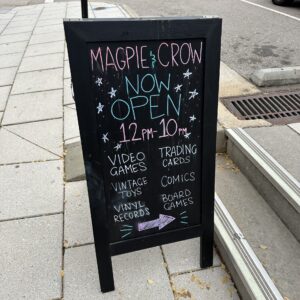 MAGPIE & CROW
NOW
OPEN
12 PM - 10 PM
VIDEO GAMES
TRADING CARDS
VINTAGE TOYS
COMICS
VINYL RECORDS
BOARD GAMES